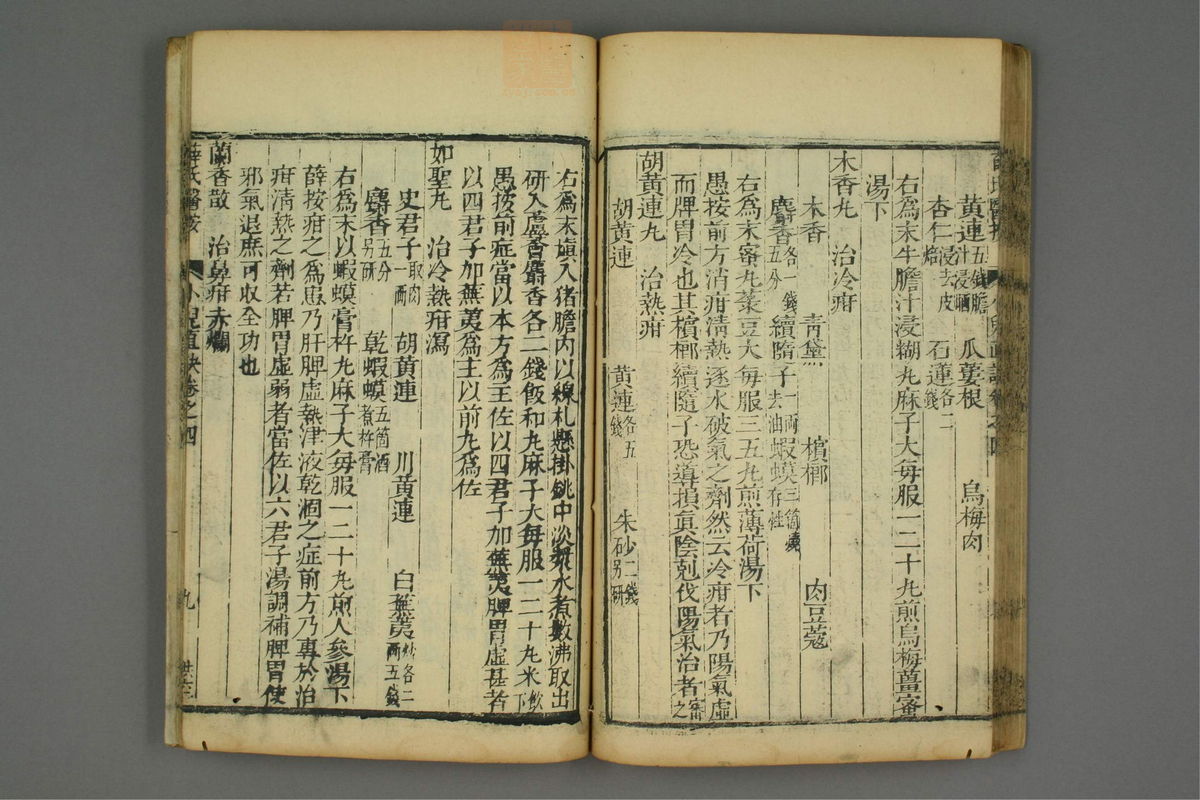 黃連五錢膽汁浸晒 瓜蔞根 烏梅肉
杏仁浸去皮焙 石蓮各二錢
右爲末牛膽汁浸糊丸麻子大每服一二十丸煎烏梅薑蜜
湯下
木香丸 治冷疳
木香 靑黛 檳榔 肉豆蔻
麝香各一錢五分 續隨子一両去油 蝦蟆三箇燒存性
右爲末蜜丸菉豆大每服三五丸煎薄荷湯下
愚按前方消疳淸熱逐水破氣之劑然云冷疳者乃陽氣虛
而脾胃冷也其檳榔續隨子恐導損眞陰剋伐陽氣治者審之
胡黃連丸 治熱疳
胡黃連 黃連各五錢 朱砂二錢另研
右爲末塡入猪膽內以線札懸掛銚中淡漿水煮數沸取出
研入蘆薈麝香各二錢飯和丸麻子大每服一二十丸米飮下
愚按前症當以本方爲主佐以四君子加蕪荑脾胃虛甚者
以四君子加蕪荑爲主以前丸爲佐
如聖丸 治冷熱疳瀉
史君子取肉一両 胡黃連 川黃連 白蕪荑炒各二両五錢
麝香五分另研 乾蝦蟆五箇酒煮杵膏
右爲末以蝦蟆膏杵丸麻子大每服一二十丸煎人參湯下
薛按疳之爲患乃肝脾虛熱津液乾涸之症前方乃專於治
疳淸熱之劑若脾胃虛弱者當佐以六君子湯調補脾胃使
邪氣退庶可收全功也
蘭香散 治鼻疳赤爛
薛氏醫按 小兒直訣卷之四 九